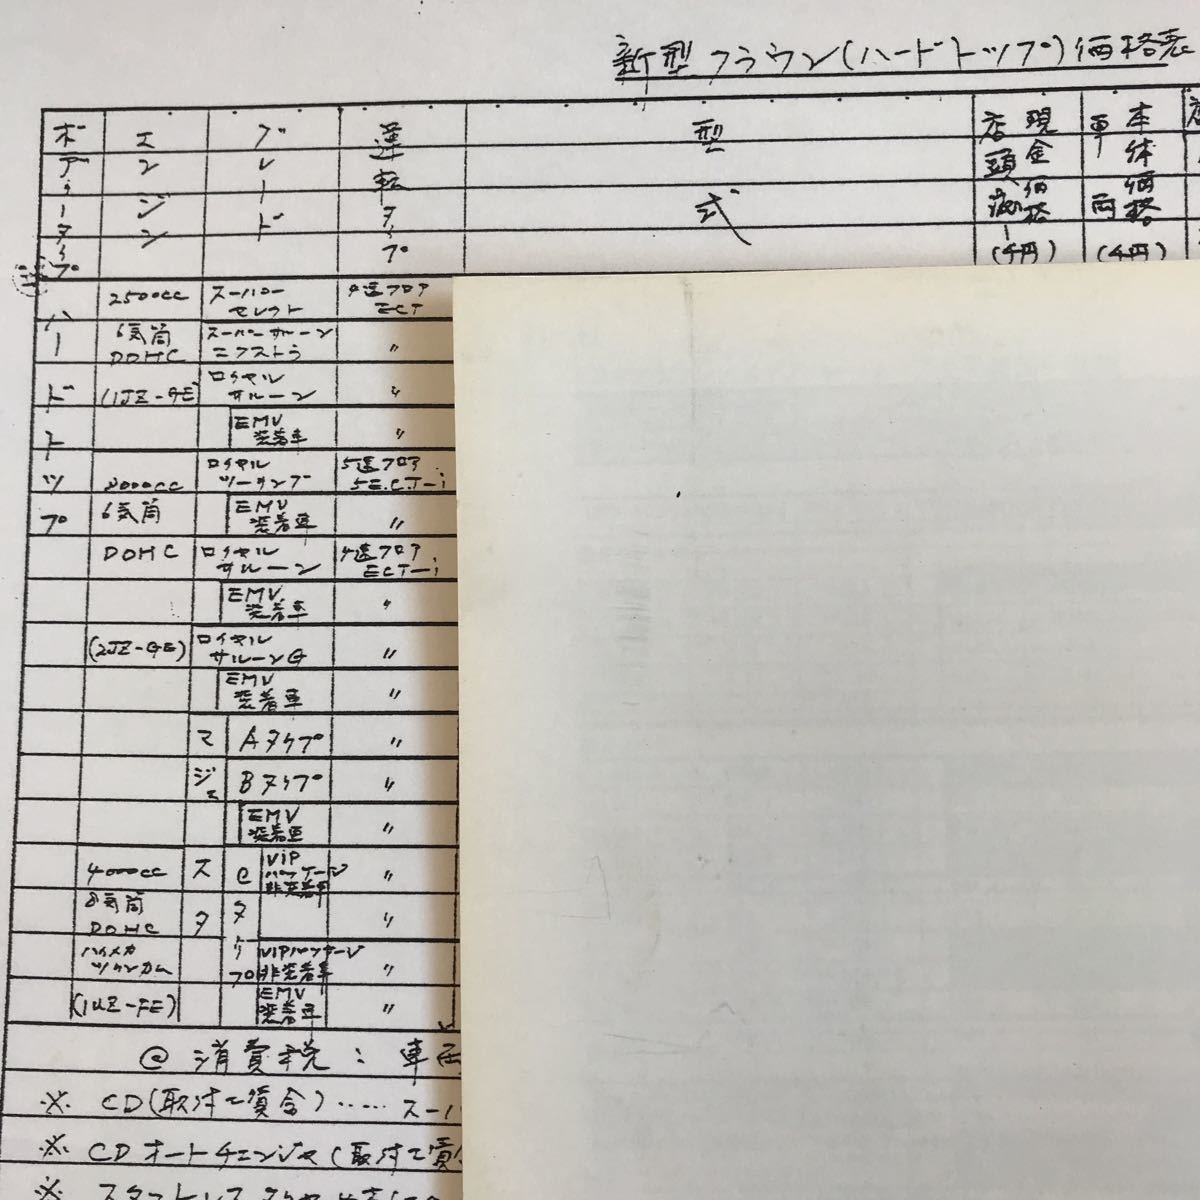 新型クラウン(ハードトップ)価格表
ボデータイプ エンジン グレード 運転タイプ 型式 店頭 現金価格 (千円) 車両 本体価格 (千円)
ハードトップ
2500cc スーパーセレクト 4速フロア ECT
6気筒 DOHC スーパーサルーン エクストラ 〃
(1JZ-GE) ロイヤル サルーン 〃
EMV 装着車 〃
3000cc ロイヤル ツーリング 5速フロア 5E.C.T-i
6気筒 EMV 装着車 〃
DOHC ロイヤル サルーン 4速フロア ECT-i
EMV 装着車 〃
(2JZ-GE) ロイヤル サルーンG 〃
EMV 装着車 〃
マジェスタ
Aタイプ 〃
Bタイプ 〃
EMV 装着車 〃
4000cc Cタイプ VIP パッケージ 非装着車 〃
8気筒 DOHC 〃
ハイメカ ツインカム VIPパッケージ 非装着車 〃
(1UZ-FE) EMV 装着車 〃
@ 消費税: 車両
※ CD(取付工賃含)‥‥‥スーパ
※ CDオートチェンジャ(取付工賃
※